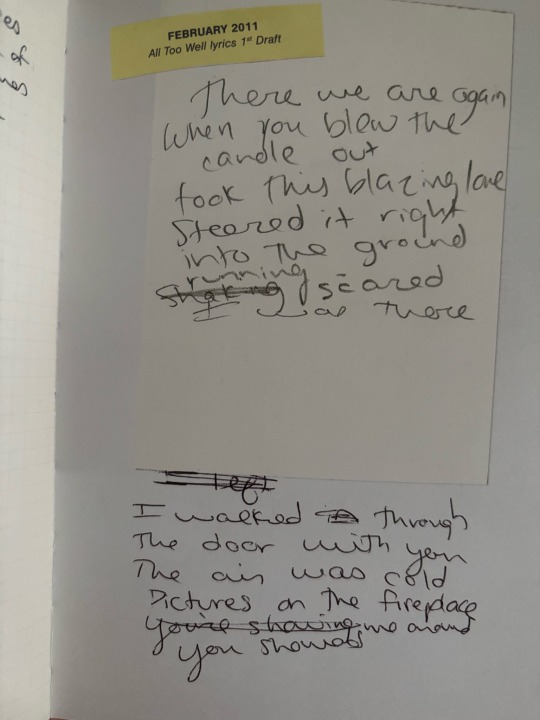 es of
FEBRUARY 2011
All Too Well lyrics 1st Draft
There we are again
When you blew the
candle out
took this blazing love
Steared it right
into the ground
running
shaking scared
I was there
left
I walked through
The door with you
The air was cold
Pictures on the fireplace
You're showing me around
you showed